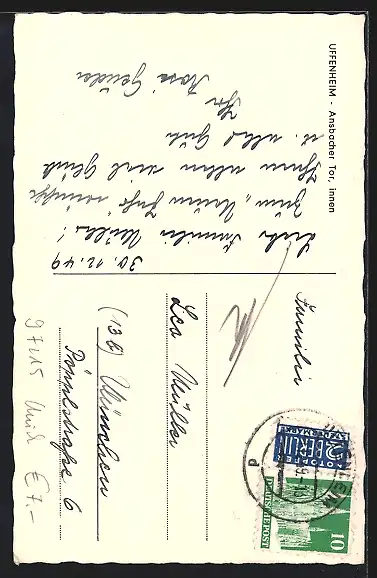 UFFENHEIM - Ansbacher Tor, innen
30. 12. 49
Liebe Familie Müller!
Zum "Neuen Jahr" wünsche
Ihnen allen viel Glück
u. alles Gute
Ihre
Rosi
Familie
Leo Müller
(13b) München
6
97215
€ 7.-
NOTOPFER
2 BERLIN
STEUERMARKE
DEUTSCHE POST
10